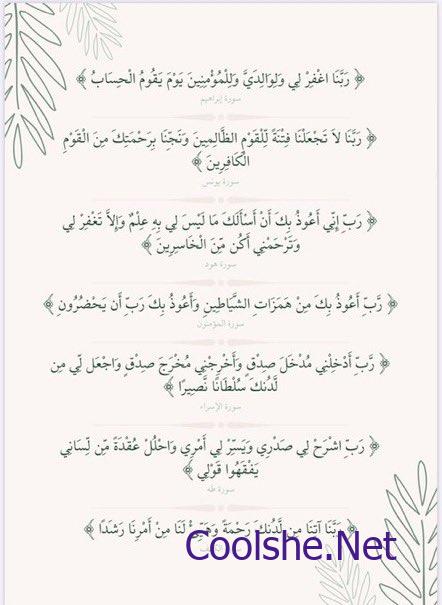 ﴿ رَبَّنَا اغْفِرْ لِي وَلِوَالِدَيَّ وَلِلْمُؤْمِنِينَ يَوْمَ يَقُومُ الْحِسَابُ ﴾
سورة إبراهيم
﴿ رَبَّنَا لاَ تَجْعَلْنَا فِتْنَةً لِّلْقَوْمِ الظَّالِمِينَ وَنَجِّنَا بِرَحْمَتِكَ مِنَ الْقَوْمِ
الْكَافِرِينَ ﴾
سورة يونس
﴿ رَبِّ إِنِّي أَعُوذُ بِكَ أَنْ أَسْأَلَكَ مَا لَيْسَ لِي بِهِ عِلْمٌ وَإِلاَّ تَغْفِرْ لِي
وَتَرْحَمْنِي أَكُن مِّنَ الْخَاسِرِينَ ﴾
سورة هود
﴿ رَّبِّ أَعُوذُ بِكَ مِنْ هَمَزَاتِ الشَّيَاطِينِ وَأَعُوذُ بِكَ رَبِّ أَن يَحْضُرُونِ ﴾
سورة المؤمنون
﴿ رَّبِّ أَدْخِلْنِي مُدْخَلَ صِدْقٍ وَأَخْرِجْنِي مُخْرَجَ صِدْقٍ وَاجْعَل لِّي مِن
لَّدُنكَ سُلْطَانًا نَّصِيرًا ﴾
سورة الإسراء
﴿ رَبِّ اشْرَحْ لِي صَدْرِي وَيَسِّرْ لِي أَمْرِي وَاحْلُلْ عُقْدَةً مِّن لِّسَانِي
يَفْقَهُوا قَوْلِي ﴾
سورة طه
﴿ رَبَّنَا آتِنَا مِن لَّدُنكَ رَحْمَةً وَهَيِّئْ لَنَا مِنْ أَمْرِنَا رَشَدًا ﴾
Coolshe.Net